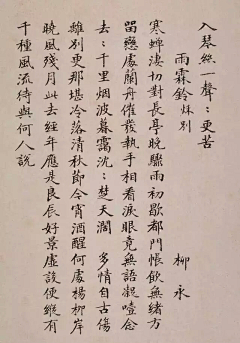 入琴絲一聲〻更苦
雨霖鈴 秋別 柳永
寒蟬淒切對長亭晚驟雨初歇都門帳飲無緒方
留戀處蘭舟催發執手相看淚眼竟無語凝噎念
去〻千里烟波暮靄沈〻楚天闊 多情自古傷
離別更那堪冷落清秋節今宵酒醒何處楊柳岸
曉風殘月此去經年應是良辰好景虛設便縱有
千種風流待與何人說